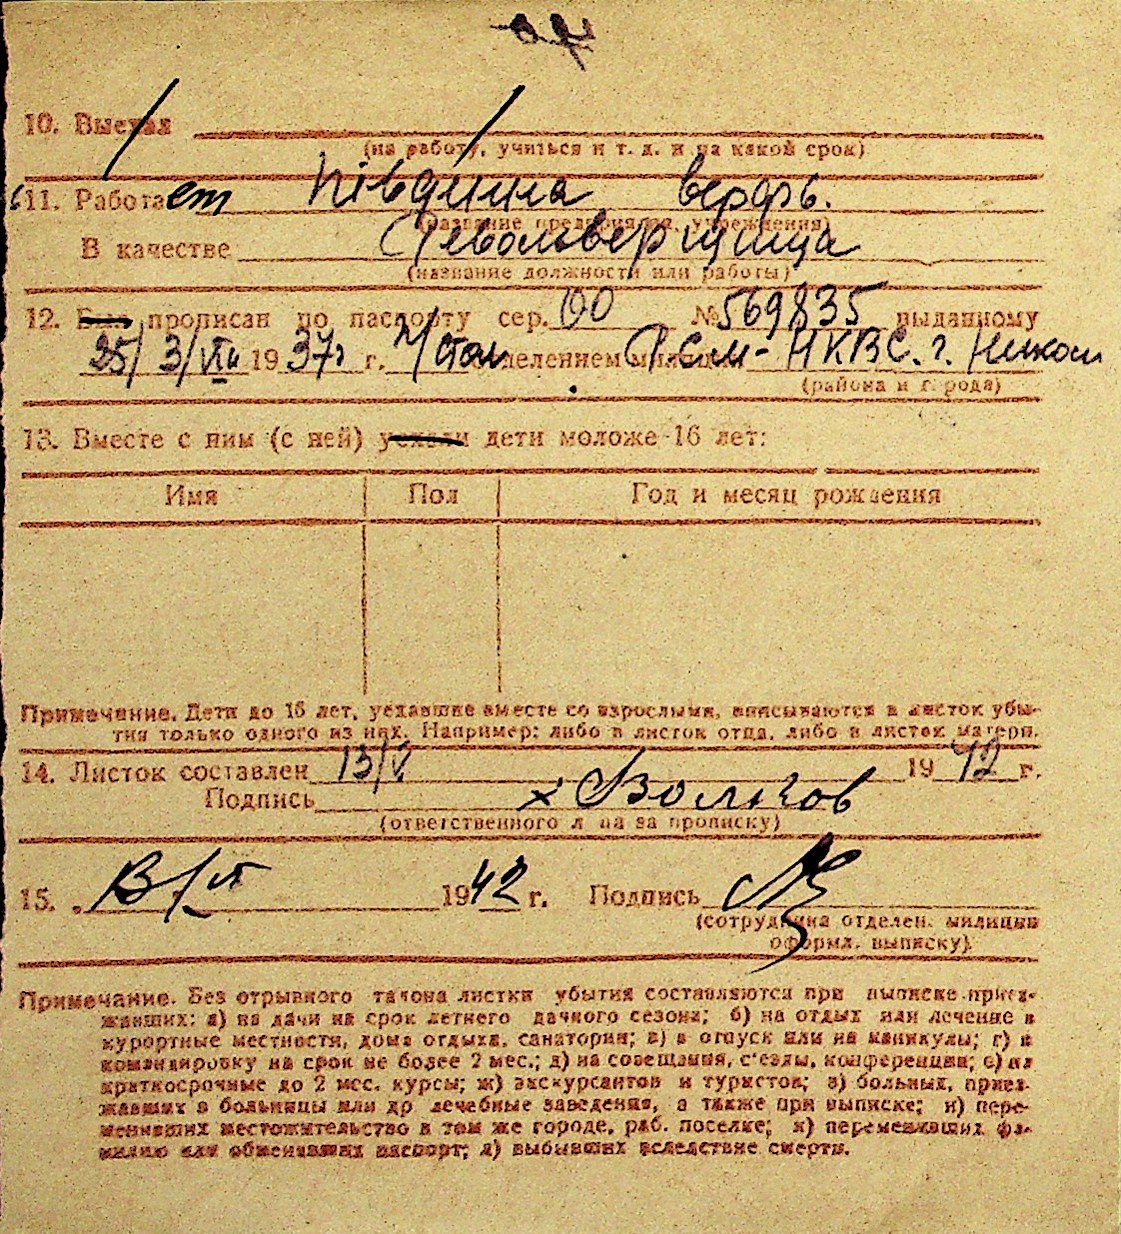 10. Выехал
(на работу, учиться и т. д. и на какой срок)
11. Работает Південна верфь.
(название предприятия, учреждения)
В качестве
(название должности или работы)
12. Был прописан по паспорту сер. № 569835 выданному
25/ 3/VIII 1937г г. отделением милиции НКВС. г.
(района и города)
13. Вместе с ним (с ней) уехали дети моложе 16 лет:
Имя Пол Год и месяц рождения
Примечание. Дети до 16 лет, уехавшие вместе со взрослыми, вписываются в листок убы-
тия только одного из них. Например: либо в листок отца, либо в листок матери.
14. Листок составлен 13/V 1942 г.
Подпись х Волков
(ответственного лица за прописку)
15. 1942 г. Подпись
(сотрудника отделен. милиции
оформл. выписку).
Примечание. Без отрывного талона листки убытия составляются при выписке приез-
жавших: а) на дачи на срок летнего дачного сезона; б) на отдых или лечение в
курортные местности, дома отдыха, санатории; в) в отпуск или на каникулы; г) в
командировку на срок не более 2 мес.; д) на совещания, с'езды, конференции; е) на
краткосрочные до 2 мес. курсы; ж) экскурсантов и туристов; з) больных, приез-
жавших в больницы или др лечебные заведения, а также при выписке; и) пере-
менивших местожительство в том же городе, раб. поселке; к) переменивших фа-
милию или обменявших паспорт; л) выбывших вследствие смерти.